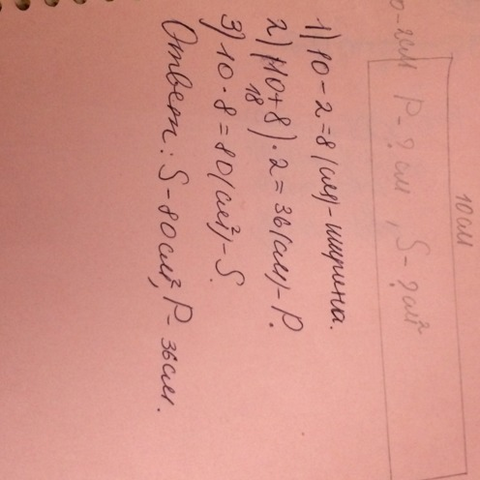 10 см
10-2см P-? см, S-? см²
1) 10-2=8 (см)-ширина.
2) (10+8)·2=36(см)-P.
18
3) 10·8=80(см²)-S.
Ответ: S-80см², P-36см.